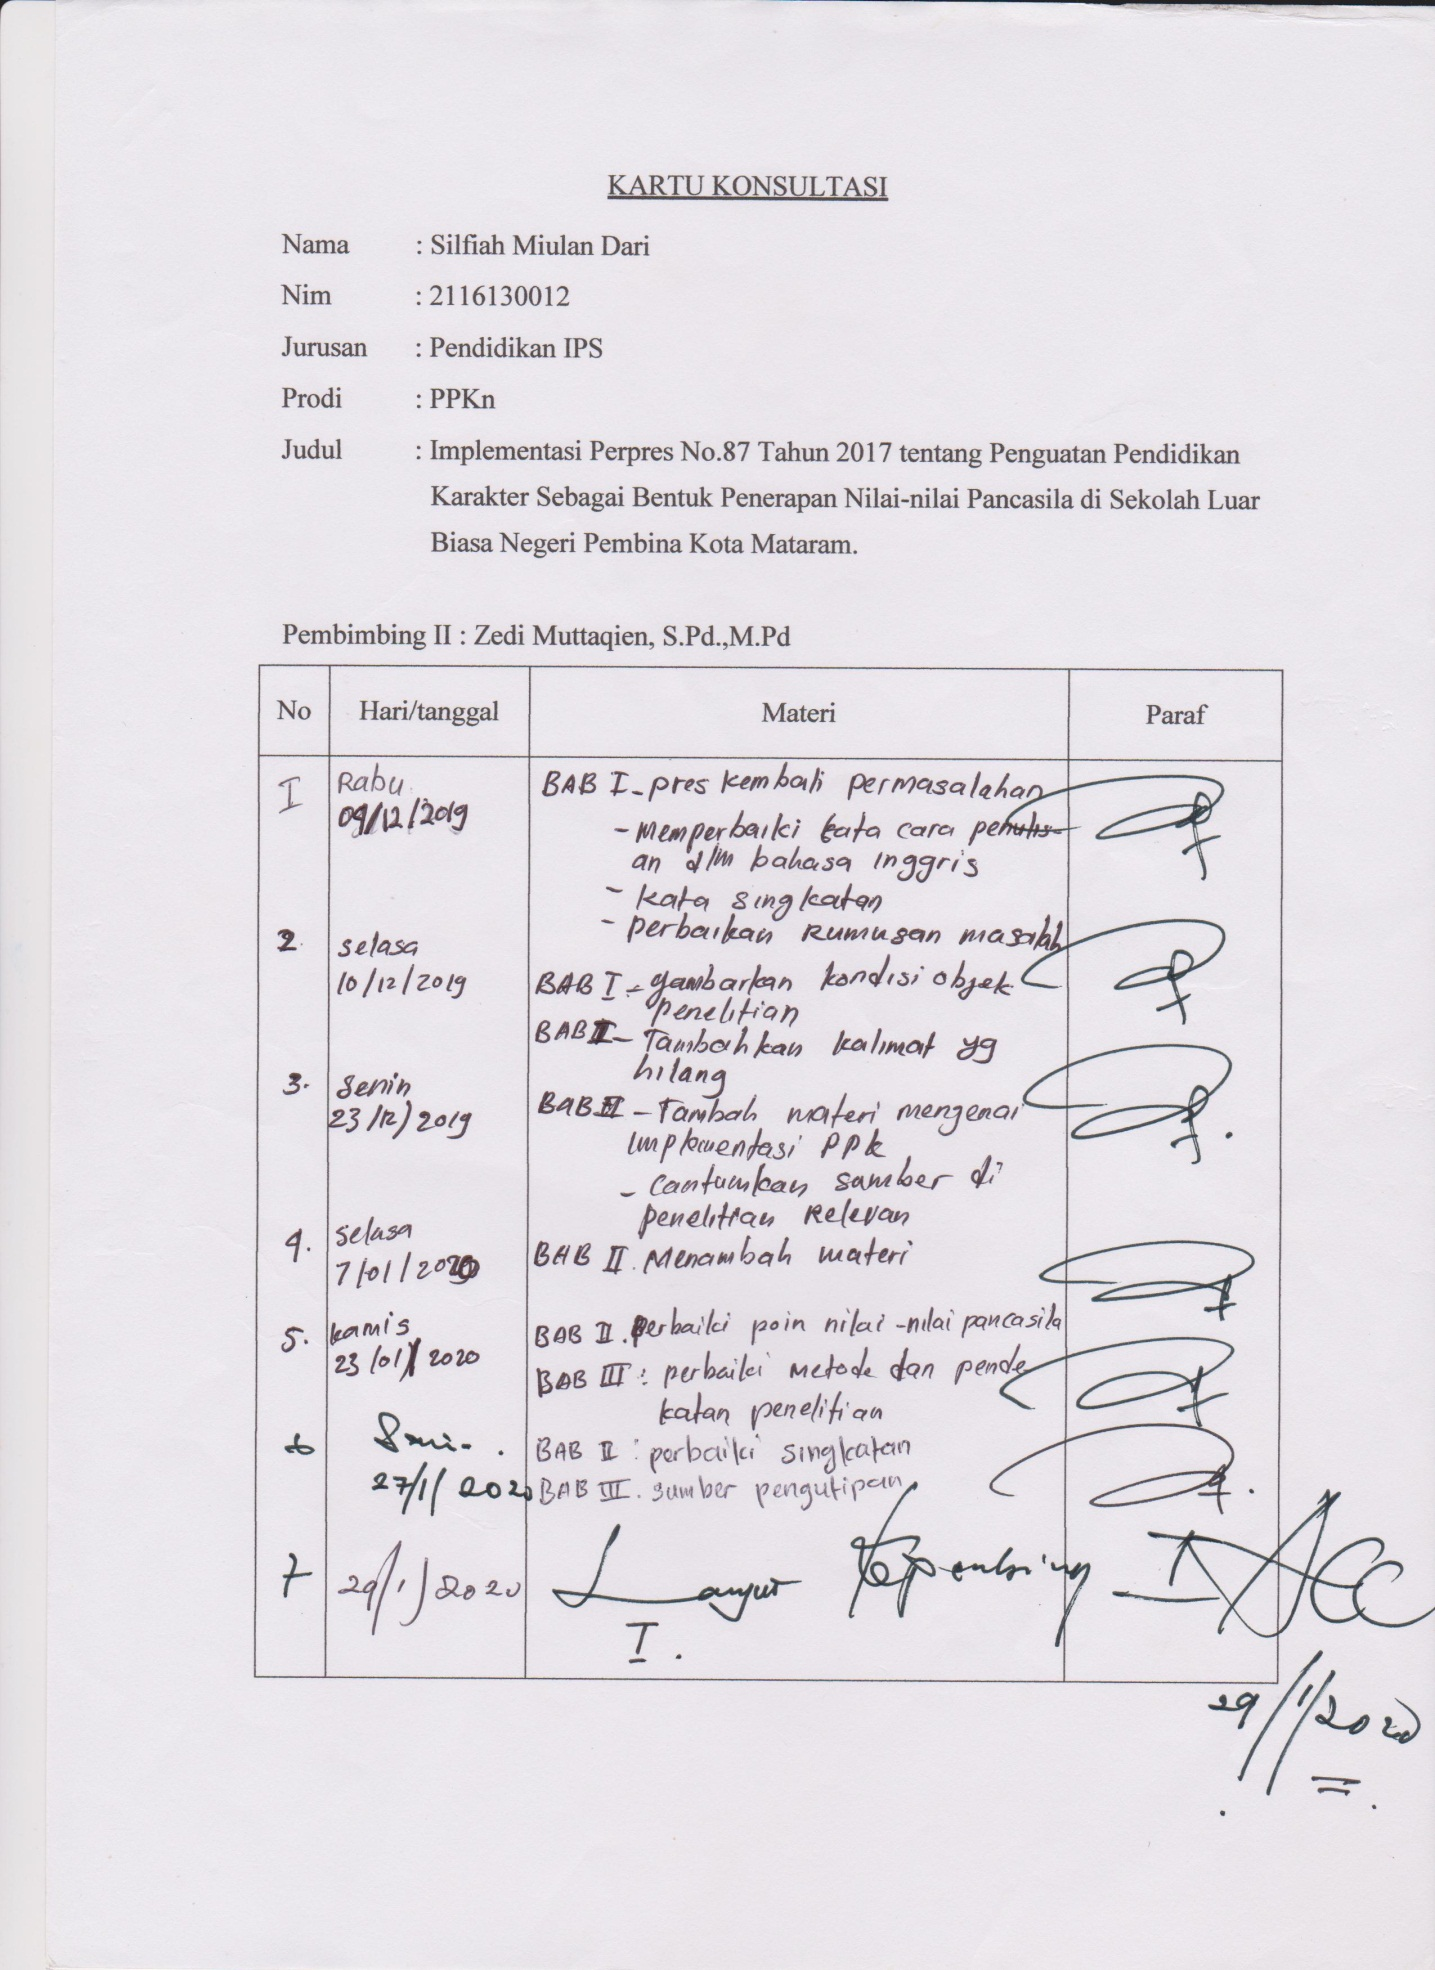 KARTU KONSULTASI
Nama : Silfiah Miulan Dari
Nim : 2116130012
Jurusan : Pendidikan IPS
Prodi : PPKn
Judul : Implementasi Perpres No.87 Tahun 2017 tentang Penguatan Pendidikan
Karakter Sebagai Bentuk Penerapan Nilai-nilai Pancasila di Sekolah Luar
Biasa Negeri Pembina Kota Mataram.
Pembimbing II : Zedi Muttaqien, S.Pd.,M.Pd
No Hari/tanggal Materi Paraf
I Rabu BAB I - pres kembali permasalahan
09/12/2019 - memperbaiki tata cara penulis-
an dlm bahasa inggris
- kata singkatan
- perbaikan Rumusan masalah
2. selasa
10/12/2019 BAB I - gambarkan kondisi objek
penelitian
BAB II - Tambahkan kalimat yg
hilang
3. senin BAB II - Tambah materi mengenai
23/12/2019 implementasi PPK
- cantumkan sumber di
penelitian Relevan
4. selasa BAB II. Menambah materi
7/01/2020
5. kamis BAB II. perbaiki poin nilai-nilai pancasila
23/01/2020 BAB III : perbaiki metode dan pende
katan penelitian
6 Senin. BAB II : perbaiki singkatan
27/1/2020 BAB III. sumber pengutipan
7 29/1/2020 Lanjut ACC
I.
29/1/2020